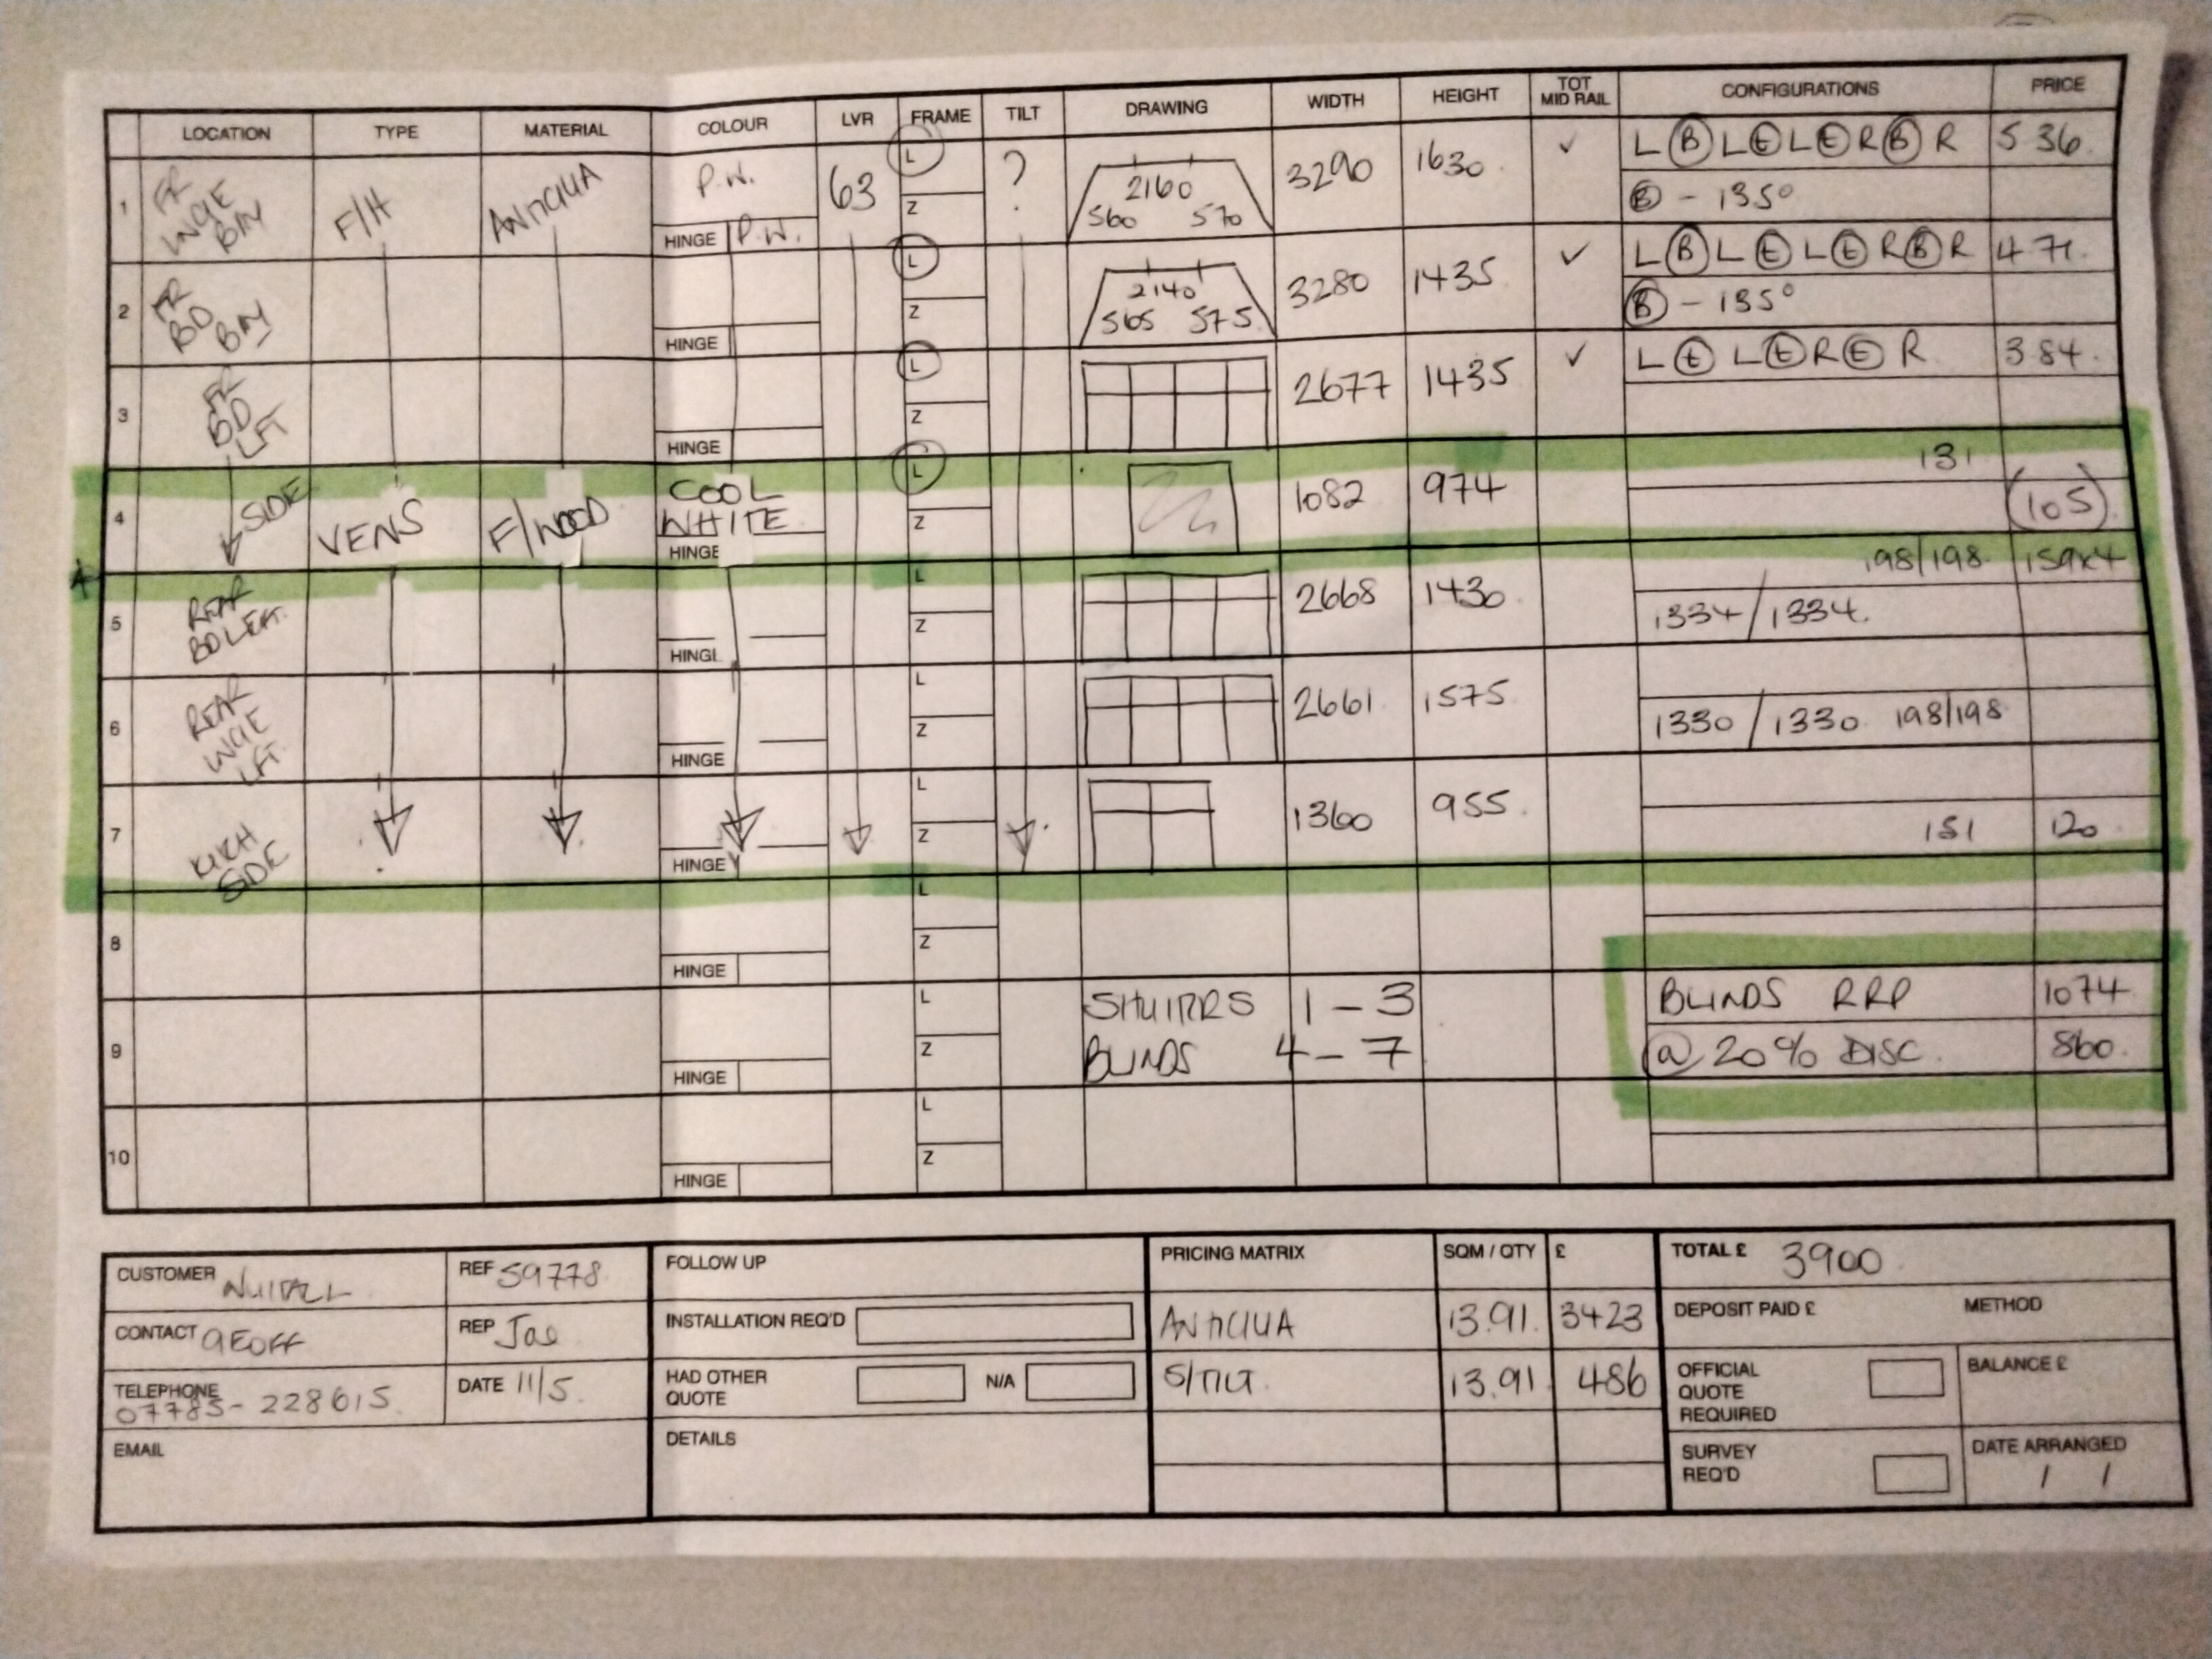 LOCATION TYPE MATERIAL COLOUR LVR FRAME TILT DRAWING WIDTH HEIGHT TOT MID RAIL CONFIGURATIONS PRICE
1 FR LNGE BAY F/H ANTIGUA P.W. HINGE P.W. 63 L Z ? 2160 560 570 3290 1630 ✓ L B L E L E R B R 5.36
B - 135°
2 FR BD BAY HINGE L Z 2140 565 575 3280 1435 ✓ L B L E L E R B R 4.71
B - 135°
3 FR BD LFT HINGE L Z 2677 1435 ✓ L E L E R E R 3.84
4 SIDE VENS F/WOOD COOL WHITE HINGE L Z 1082 974 131
(105)
5 REAR BD LEFT. HINGE L Z 2668 1430 198/198 159x4
1334/1334.
6 REAR LNGE LFT. HINGE L Z 2661 1575
1330/1330 198/198
7 KITCH SIDE HINGE L Z 1360 955 151 120
8 HINGE L Z
9 HINGE L Z SHUTTRS 1-3 BLINDS RRP 1074
BLINDS 4-7 @ 20% DISC. 860.
10 HINGE L Z
CUSTOMER NUTTALL REF 59778
CONTACT GEOFF REP Joe
TELEPHONE 07785-228615 DATE 11/5
EMAIL
FOLLOW UP
INSTALLATION REQ'D
HAD OTHER QUOTE N/A
DETAILS
PRICING MATRIX SQM / QTY £
ANTIGUA 13.91 3423
S/TILT 13.91 486
TOTAL £ 3900
DEPOSIT PAID £ METHOD
OFFICIAL QUOTE REQUIRED BALANCE £
SURVEY REQ'D DATE ARRANGED
/ /